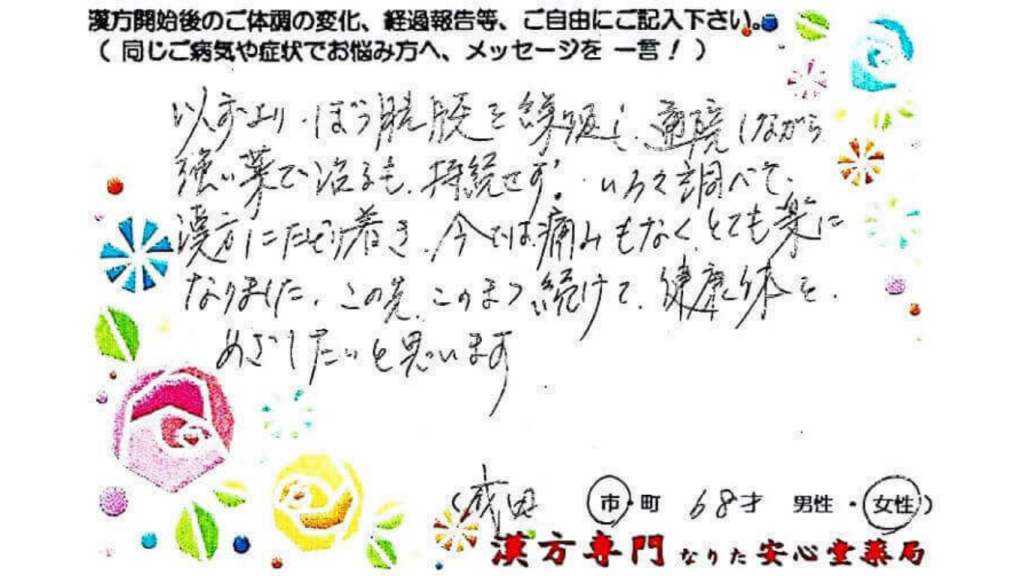 漢方開始後のご体調の変化、経過報告等、ご自由にご記入下さい。
( 同じご病気や症状でお悩み方へ、メッセージを 一言！)
以前より、ぼう胱炎を繰返し、通院しながら
強い薬で治るも、持続せず。いろいろ調べて、
漢方にたどり着き、今では痛みもなく、とても楽に
なりました。この先、このまま続けて、健康体を、
めざしたいと思います
(成田 市・町 68才 男性・女性)
漢方専門 なりた安心堂薬局